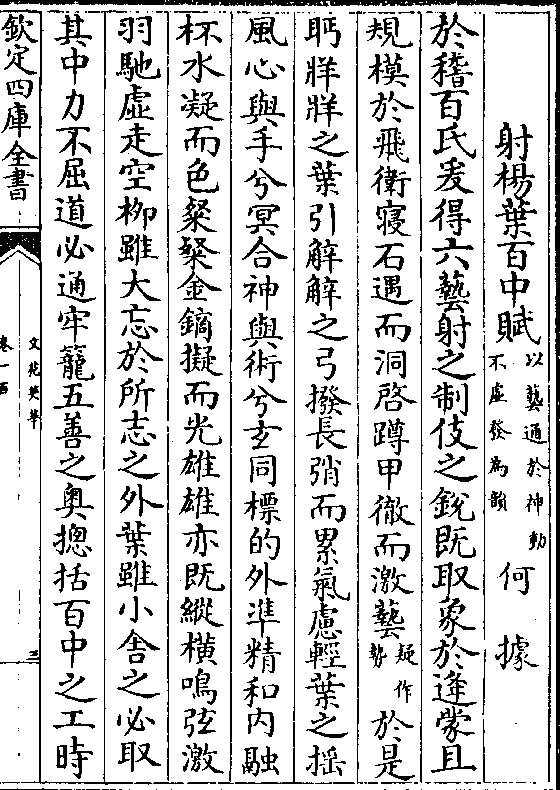 射楊葉百中賦以藝通於神動不虛發為韻 何據
於稽百氏爰得六藝射之制伎之銳既取象於逢蒙且
規模於飛衛寢石遇而洞啓蹲甲徹而激藝疑作勢於是
眄牂牂之葉引觧觧之弓撥長弰而累氣慮輕葉之揺
風心與手兮冥合神與術兮玄同標的外準精和内融
杯水凝而色粲粲金鏑擬而光雄雄亦既縱橫鳴弦激
羽馳虛走空栁雖大忘於所志之外葉雖小舎之必取
其中力不屈道必通牢籠五善之奥揔括百中之工時
欽定四庫全書
文苑英華
卷一百
三